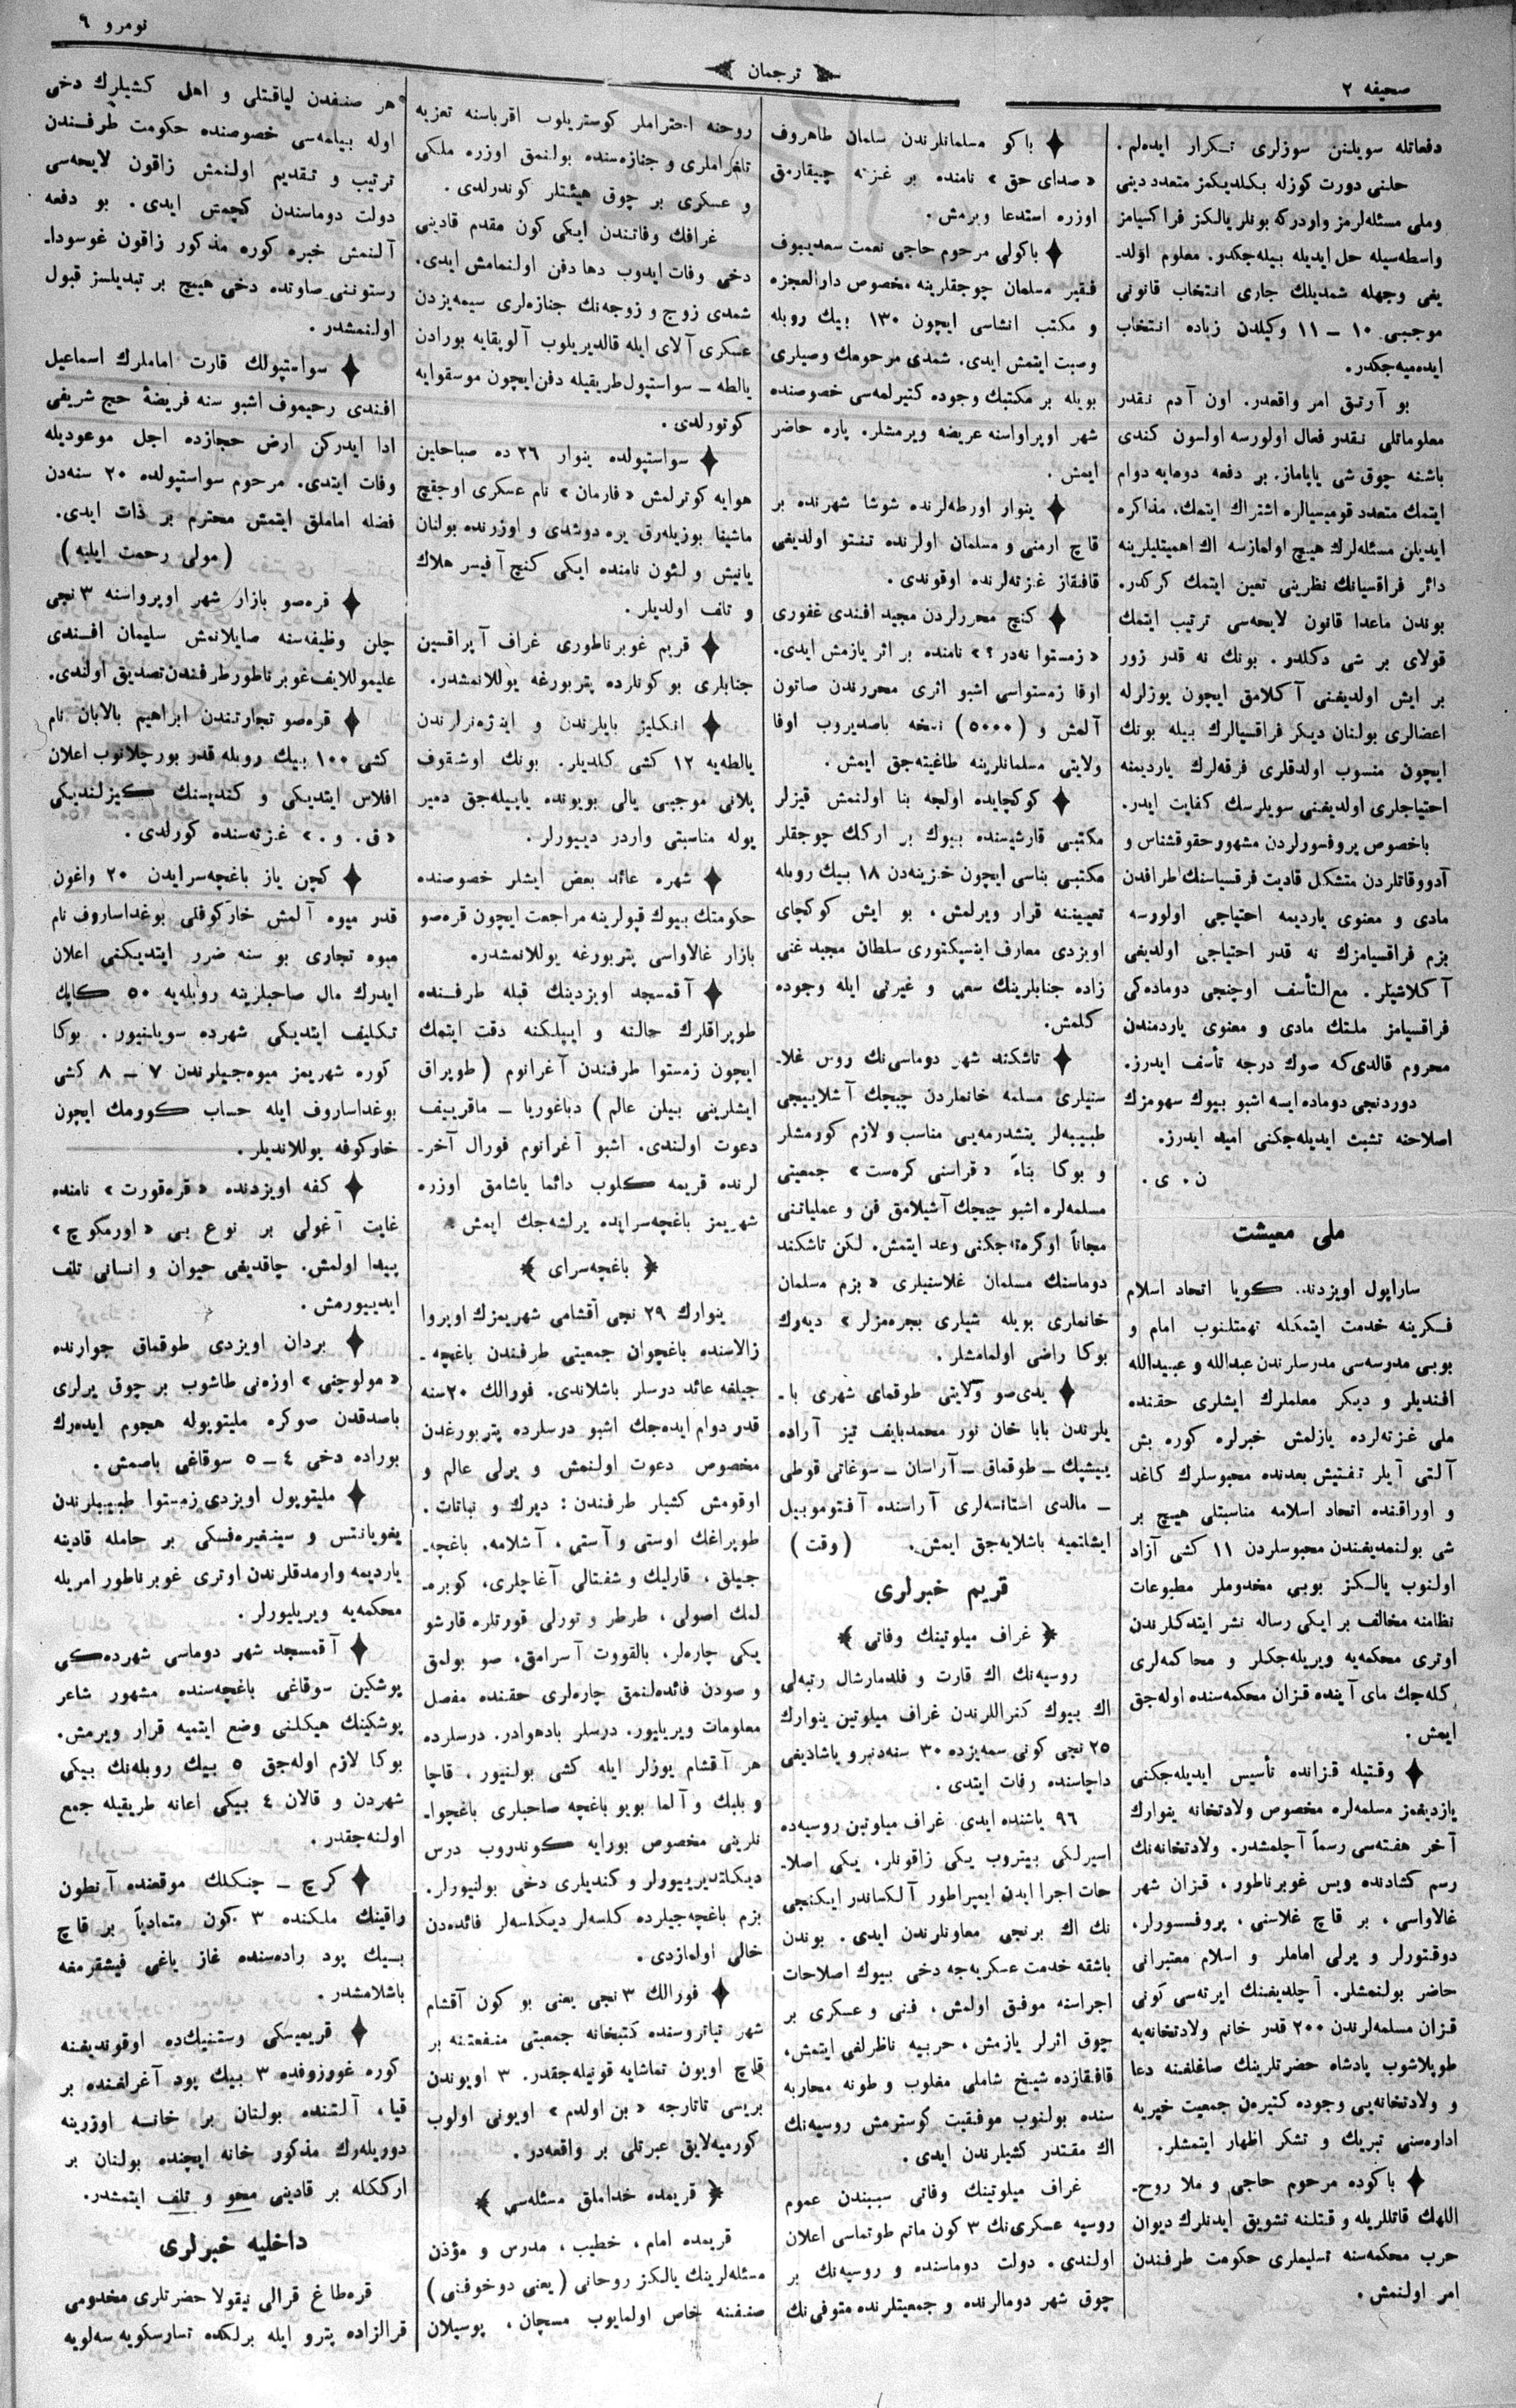 صحیفه ٢
ترجمان
نومرو ٩
دفعاتله سویلنن سوزلری تكرار ایده‌لم.
حلنی دورت كوزله بكلدیكمز متعدد دینی
وملی مسئله‌لرمز واردركه بونلر یالكز فراكسیامز
واسطه‌سیله حل ایدیله بیله‌جكدر. معلوم اولد-
یغی وجهله شمدیلك جاری انتخاب قانونی
موجبی ١٠ – ١١ وكیلدن زیاده انتخاب
ایده‌میه‌جكدر.
بو آرتق امر واقعدر. اون آدم نقدر
معلوماتلی نقدر فعال اولورسه اولسون كندی
باشنه چوق شی یاپاماز. بر دفعه دومایه دوام
ایتمك متعدد قومیسیالره اشتراك ایتمك، مذاكره
ایدیلن مسئله‌لرك هیچ اولمازسه اك اهمیتلیلرینه
دائر فراقسیانك نظرینی تعین ایتمك كركدر.
بوندن ماعدا قانون لایحه‌سی ترتیب ایتمك
قولای بر شی دكلدر. بونك نه قدر زور
بر ایش اولدیغنی آكلامق ایچون یوزلرله
اعضالری بولنان دیكر فراقسیالرك بیله بونك
ایچون منسوب اولدقلری فرقه‌لرك یاردیمنه
احتیاجلری اولدیغنی سویلرسك كفایت ایدر.
باخصوص پروفسورلردن مشهور حقوقشناس و
آدووقاتلردن متشكل قادیت فرقسیاسنك طرافدن
مادی و معنوی یاردیمه احتیاجی اولورسه
بزم فراقسیامزك نه قدر احتیاجی اولدیغی
آكلاشیلر. مع‌التأسف اوچنجی دوماده‌كی
فراقسیامز ملتك مادی و معنوی یاردمندن
محروم قالدی‌كه صوك درجه تأسف ایدرز.
دوردنجی دوماده ایسه اشبو بیوك سهومزك
اصلاحنه تشبث ایدیله‌جكنی امید ایدرز.
ن. ی.
ملی معیشت
ساراپول اویزدنده كویا اتحاد اسلام
فكرینه خدمت ایتمكله تهمتلنوب امام و
بوبی مدرسه‌سی مدرسلرندن عبدالله و عبیدالله
افندیلر و دیكر معلملرك ایشلری حقنده
ملی غزته‌لرده یازلمش خبرلره كوره بش
آلتی آیلر تفتیش بعدنده محبوسلرك كاغد
و اوراقنده اتحاد اسلامه مناسبتلی هیچ بر
شی بولنمدیغندن محبوسلردن ١١ كشی آزاد
اولنوب یالكز بوبی مخدوملر مطبوعات
نظامنه مخالف بر ایكی رساله نشر ایتدكلرندن
اوتری محكمه‌یه ویریله‌جكلر و محاكمه‌لری
كله‌جك مای آینده قزان محكمه‌سنده اوله‌جق
ایمش.
وقتیله قزانده تأسیس ایدیله‌جكنی
یازدیغمز مسلمه‌لره مخصوص ولادتخانه ینوارك
آخر هفته‌سی رسماً آچلمشدر. ولادتخانه‌نك
رسم كشادنده ویس غوبرناطور، قزان شهر
غالاواسی، بر قاچ غلاسنی، پروفسورلر،
دوقتورلر و یرلی اماملر و اسلام معتبرانی
حاضر بولنمشلر. آچلدیغینك ایرته‌سی كونی
قزان مسلمه‌لرندن ٢٠٠ قدر خانم ولادتخانه‌یه
طوپلاشوب پادشاه حضرتلرینك صاغلغنه دعا
و ولادتخانه‌یی وجوده كتیره‌ن جمعیت خیریه
اداره‌سنی تبریك و تشكر اظهار ایتمشلر.
باكوده مرحوم حاجی و ملا روح-
اللهك قاتللریله و قتلنه تشویق ایدنلرك دیوان
حرب محكمه‌سنه تسلیملری حكومت طرفندن
امر اولنمش.
باكو مسلمانلرندن سلمان طاهروف
«صدای حق» نامنده بر غزته چیقارمق
اوزره استدعا ویرمش.
باكولی مرحوم حاجی نعمت سعدیبوف
فقیر مسلمان چوجقلرینه مخصوص دارالعجزه
و مكتب انشاسی ایچون ١٣٠ بیك روبله
وصیت ایتمش ایدی. شمدی مرحومك وصیلری
بویله بر مكتبك وجوده كتیرلمه‌سی خصوصنده
شهر اوپراواسنه عریضه ویرمشلر. پاره حاضر
ایمش.
ینوار اورطه‌لرنده شوشا شهرنده بر
قاچ ارمنی و مسلمان اولرنده تفتو اولدیغی
قافقاز غزته‌لرنده اوقوندی.
كنج محررلردن مجید افندی غفوری
«زمستوا نه‌در؟» نامنده بر اثر یازمش ایدی.
اوفا زمستواسی اشبو اثری محررندن صاتون
آلمش و (٥٠٠٠) نسخه باصدیروب اوفا
ولایتی مسلمانلرینه طاغیته‌جق ایمش.
كوكچایده اولجه بنا اولنمش قیزلر
مكتبی قارشیسنده بیوك بر اركك چوجقلر
مكتبی بناسی ایچون خزینه‌دن ١٨ بیك روبله
تعییننه قرار ویرلمش. بو ایش كوكچای
اویزدی معارف اینسپكتوری سلطان مجید غنی
زاده جنابلرینك سعی و غیرتی ایله وجوده
كلمش.
تاشكند شهر دوماسی‌نك روس غلا-
سنیلری مسلمه خانملردن چیچك آشلاییجی
طبیبه‌لر یتشدرمه‌یی مناسب و لازم كورمشلر
و بوكا بناءً «قراسنی كره‌ست» جمعیتی
مسلمه‌لره اشبو چیچك آشیلامق فن و عملیاتنی
مجاناً اوكره‌ته‌جكنی وعد ایتمش. لكن تاشكند
دوماسنك مسلمان غلاسنیلری «بزم مسلمان
خانملری بویله شیلری بجره‌مزلر» دیه‌رك
بوكا راضی اولمامشلر.
یدی‌صو ولایتی طوقمای شهری با-
یلرندن بابا خان نور محمدبایف تیز آراده
پیشپك – طوقماق – آراسان – سوغاتی قوطی
– مالدی استانسه‌لری آراسنده آفتوموبیل
ایشاتمیه باشلایه‌جق ایمش. (وقت)
قریم خبرلری
غراف میلوتینك وفاتی
روسیه‌نك اك قارت و فلدمارشال رتبه‌لی
اك بیوك كنراللرندن غراف میلوتین ینوارك
٢٥ نجی كونی سمه‌یزده ٣٠ سنه‌دنبرو یاشادیغی
داچاسنده وفات ایتدی.
٩٦ یاشنده ایدی. غراف میلوتین روسیه‌ده
اسیرلكی بیتروب یكی زاقونلر، یكی اصلا-
حات اجرا ایدن ایمپراطور آلكساندر ایكنجی
نك اك برنجی معاونلرندن ایدی. بوندن
باشقه خدمت عسكریه‌جه دخی بیوك اصلاحات
اجراسنه موفق اولمش، فنی و عسكری بر
چوق اثرلر یازمش، حربیه ناظرلغی ایتمش،
قافقازده شیخ شاملی مغلوب و طونه محاربه
سنده بولنوب موفقیت كوسترمش روسیه‌نك
اك مقتدر كشیلرندن ایدی.
غراف میلوتینك وفاتی سببندن عموم
روسیه عسكری‌نك ٣ كون ماتم طوتماسی اعلان
اولندی. دولت دوماسنده و روسیه‌نك بر
چوق شهر دومالرنده و جمعیتلرنده متوفی‌نك
روحنه احتراملر كوستریلوب اقرباسنه تعزیه
تلغراملری و جنازه‌سنده بولنمق اوزره ملكی
و عسكری بر چوق هیئتلر كوندرلدی.
غرافك وفاتندن ایكی كون مقدم قادینی
دخی وفات ایدوب دها دفن اولنمامش ایدی.
شمدی زوج و زوجه‌نك جنازه‌لری سیمه‌یزدن
عسكری آلای ایله قالدیریلوب آلوپقایه بورادن
یالطه – سواستپول طریقیله دفن ایچون موسقوایه
كوتورلدی.
سواستپولده ینوار ٢٦ ده صباحلین
هوایه كوترلمش «فارمان» نام عسكری اوچقچ
ماشینا بوزیله‌رق یره دوشدی و اوزرنده بولنان
یانیش و لئون نامنده ایكی كنج آفیسر هلاك
و تلف اولدیلر.
قریم غوبرناطوری غراف آپراقسین
جنابلری بو كونلرده پتربورغه یوللانمشدر.
انكلیز بایلرندن و اینژه‌نرلرندن
یالطه‌یه ١٢ كشی كلدیلر. بونك اوشقوف
پلانی موجبی یالی بویونده یاپیله‌جق دمیر
یوله مناسبتی واردر دییورلر.
شهره عائد بعض ایشلر خصوصنده
حكومتك بیوك قپولرینه مراجعت ایچون قره‌صو
بازار غالاواسی پتربورغه یوللانمشدر.
آقمسجد اویزدینك قبله طرفنده
طوپراقلرك حالنه و ایپلكنه دقت ایتمك
ایچون زمستوا طرفندن آغرانوم (طوپراق
ایشلرینی بیلن عالم) دباغوریا – ماقرییف
دعوت اولندی. اشبو آغرانوم فورال آخر-
لرنده قریمه كلوب دائما یاشامق اوزره
شهریمز باغچه‌سرایده یرلشه‌جك ایمش.
باغچه‌سرای
ینوارك ٢٩ نجی آقشامی شهریمزك اوپروا
زالاسنده باغچوان جمعیتی طرفندن باغچه-
جیلغه عائد درسلر باشلاندی. فورالك ٢٠ سنه
قدر دوام ایده‌جك اشبو درسلرده پتربورغدن
مخصوص دعوت اولنمش و یرلی عالم و
اوقومش كشیلر طرفندن: دیرك و نباتات.
طوپراغك اوستی و آستی، آشلامه، باغچه-
جیلق، قارلیك و شفتالی آغاچلری، كوبره-
لمك اصولی، طرطر و تورلی قورتلره قارشو
یكی چاره‌لر، بالقووت آسرامق، صو بولمق
و صودن فائده‌لنمق چاره‌لری حقنده مفصل
معلومات ویریلیور. درسلر بادهوادر. درسلرده
هر آقشام یوزلر ایله كشی بولنیور. قاچا
و بلبك و آلما بویو باغچه صاحبلری باغچوا-
نلرینی مخصوص بورایه كوندروب درس
دیكلتدیریورلر و كندیلری دخی بولنیورلر.
بزم باغچه‌جیلرده كلسه‌لر دیكلسه‌لر فائده‌دن
خالی اولمازدی.
فورالك ٣ نجی یعنی بو كون آقشام
شهر تیاتروسنده كتبخانه جمعیتی منفعتنه بر
قاچ اویون تماشایه قونیله‌جقدر. ٣ اویوندن
بریسی تاتارجه «بن اولدم» اویونی اولوب
كورمیه لایق عبرتلی بر واقعه‌در.
قریمده خداملق مسئله‌سی
قریمده امام، خطیب، مدرس و مؤذن
مسئله‌لرینك یالكز روحانی (یعنی دوخوفنی)
صنفنه خاص اولمایوب مسچان، پوسیلان
هر صنفدن لیاقتلی و اهل كشیلرك دخی
اوله بیلمه‌سی خصوصنده حكومت طرفندن
ترتیب و تقدیم اولنمش زاقون لایحه‌سی
دولت دوماسندن كچمش ایدی. بو دفعه
آلنمش خبره كوره مذكور زاقون غوسودا-
رستوننی صاوتده دخی هیچ بر تبدیلسز قبول
اولنمشدر.
سواستپولك قارت اماملرك اسماعیل
افندی رحیموف اشبو سنه فریضهٔ حج شریفی
ادا ایدركن ارض حجازده اجل موعودیله
وفات ایتدی. مرحوم سواستپولده ٢٠ سنه‌دن
فضله اماملق ایتمش محترم بر ذات ایدی.
(مولی رحمت ایلیه)
قره‌صو بازار شهر اوپرواسنه ٣ نجی
چلن وظیفه‌سنه صایلانمش سلیمان افندی
علیموللایف غوبرناطور طرفندن تصدیق اولندی.
قره‌صو تجارتندن ابراهیم بالابان نام
كشی ١٠٠ بیك روبله قدر بورجلانوب اعلان
افلاس ایتدیكی و كندیسنك كیزلندیكی
«ق. و.» غزته‌سنده كورلدی.
كچن یاز باغچه‌سرایدن ٢٠ واغون
قدر میوه آلمش خاركوفلی بوغداساروف نام
میوه تجاری بو سنه ضرر ایتدیكنی اعلان
ایدرك مال صاحبلرینه روبله‌یه ٥٠ كاپك
تكلیف ایتدیكی شهرده سویلنیور. بوكا
كوره شهریمز میوه‌جیلرندن ٧ – ٨ كشی
بوغداساروف ایله حساب كوورمك ایچون
خاركوفه یوللاندیلر.
كفه اویزدنده «قره‌قورت» نامنده
غایت آغولی بر نوع بی «اورمكوچ»
پیدا اولمش. چاقدیغی حیوان و انسانی تلف
ایدییورمش.
بردان اویزدی طوقماق جوارنده
«مولوچنی» اوزه‌نی طاشوب بر چوق یرلری
باصدقدن صوكره ملیتوپوله هجوم ایده‌رك
بوراده دخی ٤ – ٥ سوقاغی باصمش.
ملیتوپول اویزدی زمستوا طبیبلرندن
یغویانتس و سینغیره‌فسكی بر حامله قادینه
یاردیمه وارمدقلرندن اوتری غوبرناطور امریله
محكمه‌یه ویریلیورلر.
آقمسجد شهر دوماسی شهرده‌كی
پوشكین سوقاغی باغچه‌سنده مشهور شاعر
پوشكینك هیكلنی وضع ایتمیه قرار ویرمش.
بوكا لازم اوله‌جق ٥ بیك روبله‌نك بیكی
شهردن و قالان ٤ بیكی اعانه طریقیله جمع
اولنه‌جقدر.
كرچ – چنكلك موقعنده آنطون
راقینك ملكنده ٣ كون متمادیاً بر قاچ
بیك پود راده‌سنده غاز یاغی فیشقرمغه
باشلامشدر.
قریمیسكی وستنیك‌ده اوقوندیغنه
كوره غورزوفده ٣ بیك پود آغرلغنده بر
قیا، آلتنده بولنان بر خانه اوزرینه
دوریله‌رك مذكور خانه ایچنده بولنان بر
ارككله بر قادینی محو و تلف ایتمشدر.
داخلیه خبرلری
قره‌طاغ قرالی نیقولا حضرتلری مخدومی
قرالزاده پترو ایله برلكده تسارسكویه سه‌لویه